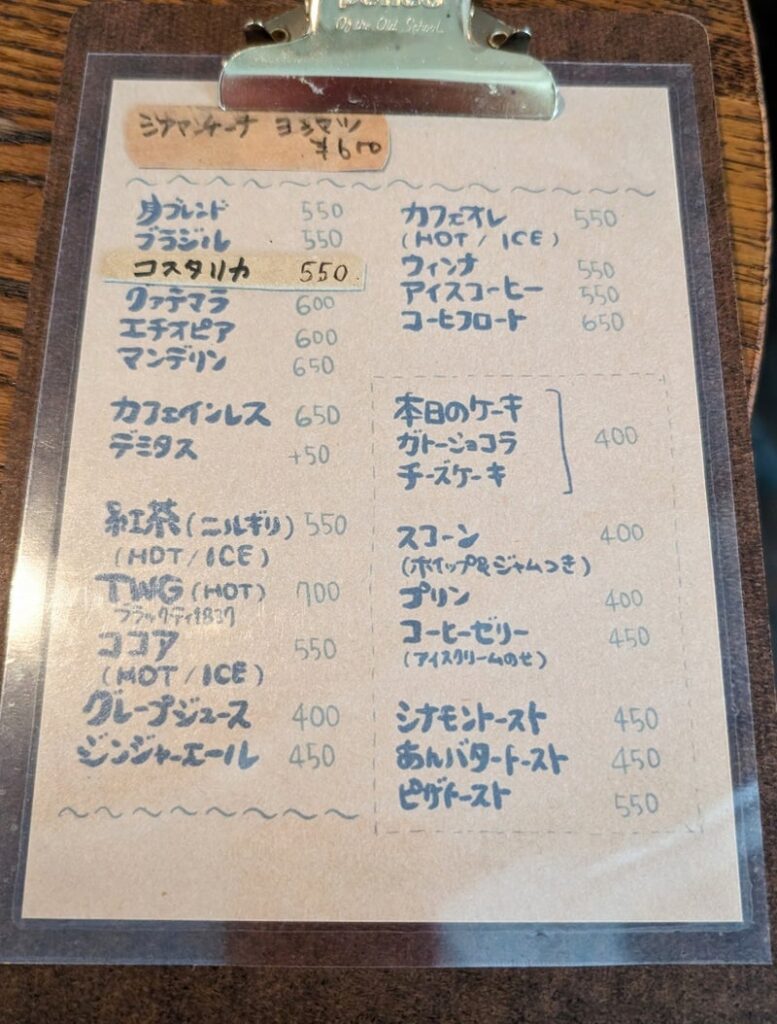 Of the Old School
¥600
ブレンド 550
ブラジル 550
コスタリカ 550
グァテマラ 600
エチオピア 600
マンデリン 650
カフェインレス 650
デミタス +50
紅茶(ニルギリ) 550
(HOT/ICE)
TWG(HOT) 700
ブラックティ1837
ココア 550
(HOT/ICE)
グレープジュース 400
ジンジャーエール 450
カフェオレ 550
(HOT/ICE)
ウィンナ 550
アイスコーヒー 550
コーヒフロート 650
本日のケーキ
ガトーショコラ 400
チーズケーキ
スコーン 400
(ホイップ&ジャムつき)
プリン 400
コーヒーゼリー 450
(アイスクリームのせ)
シナモントースト 450
あんバタートースト 450
ピザトースト 550